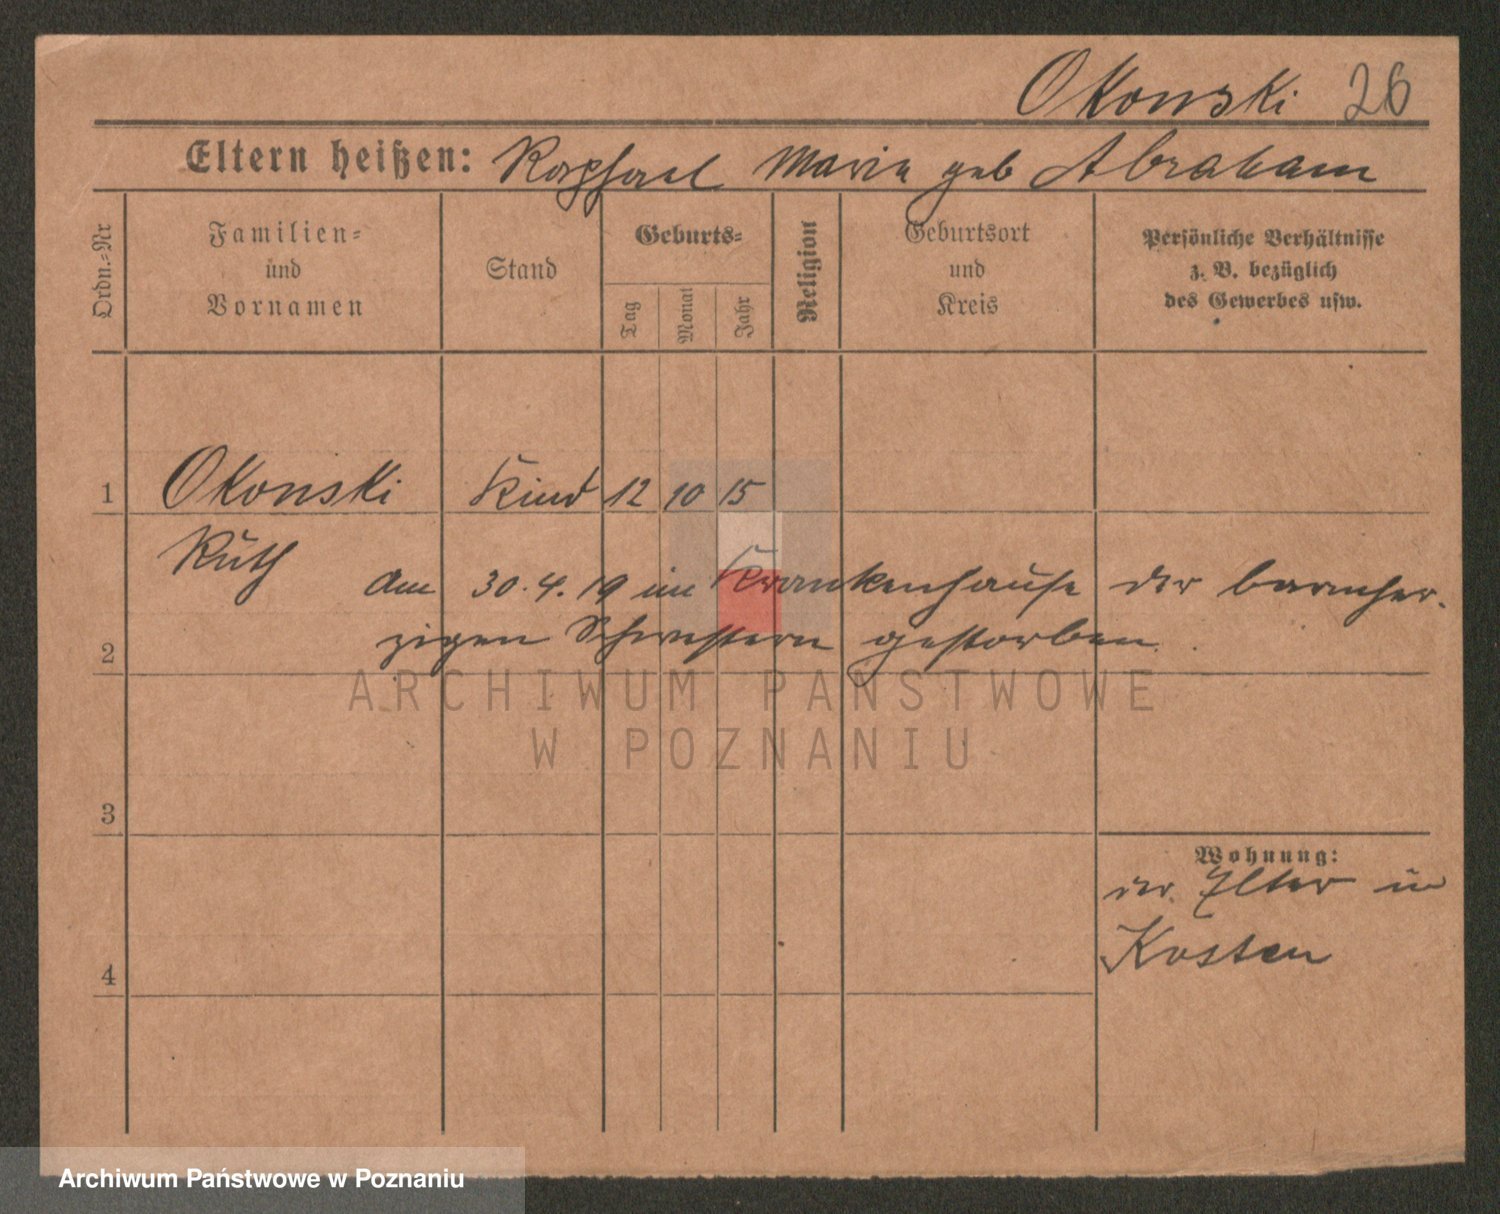 Okonski 26
Eltern heißen: Raphael Marie geb Abraham
Ordn.=Nr
Familien=
und
Vornamen
Stand
Geburts=
Tag
Monat
Jahr
Religion
Geburtsort
und
Kreis
Persönliche Verhältnisse
z. B. bezüglich
des Gewerbes usw.
1 Okonski Kind 12 10 15
Ruth
am 30.4.19 im Krankenhause der barmher-
2 zigen Schwestern gestorben.
ARCHIWUM PAŃSTWOWE
W POZNANIU
3
Wohnung:
der Elter in
Kosten
4
Archiwum Państwowe w Poznaniu